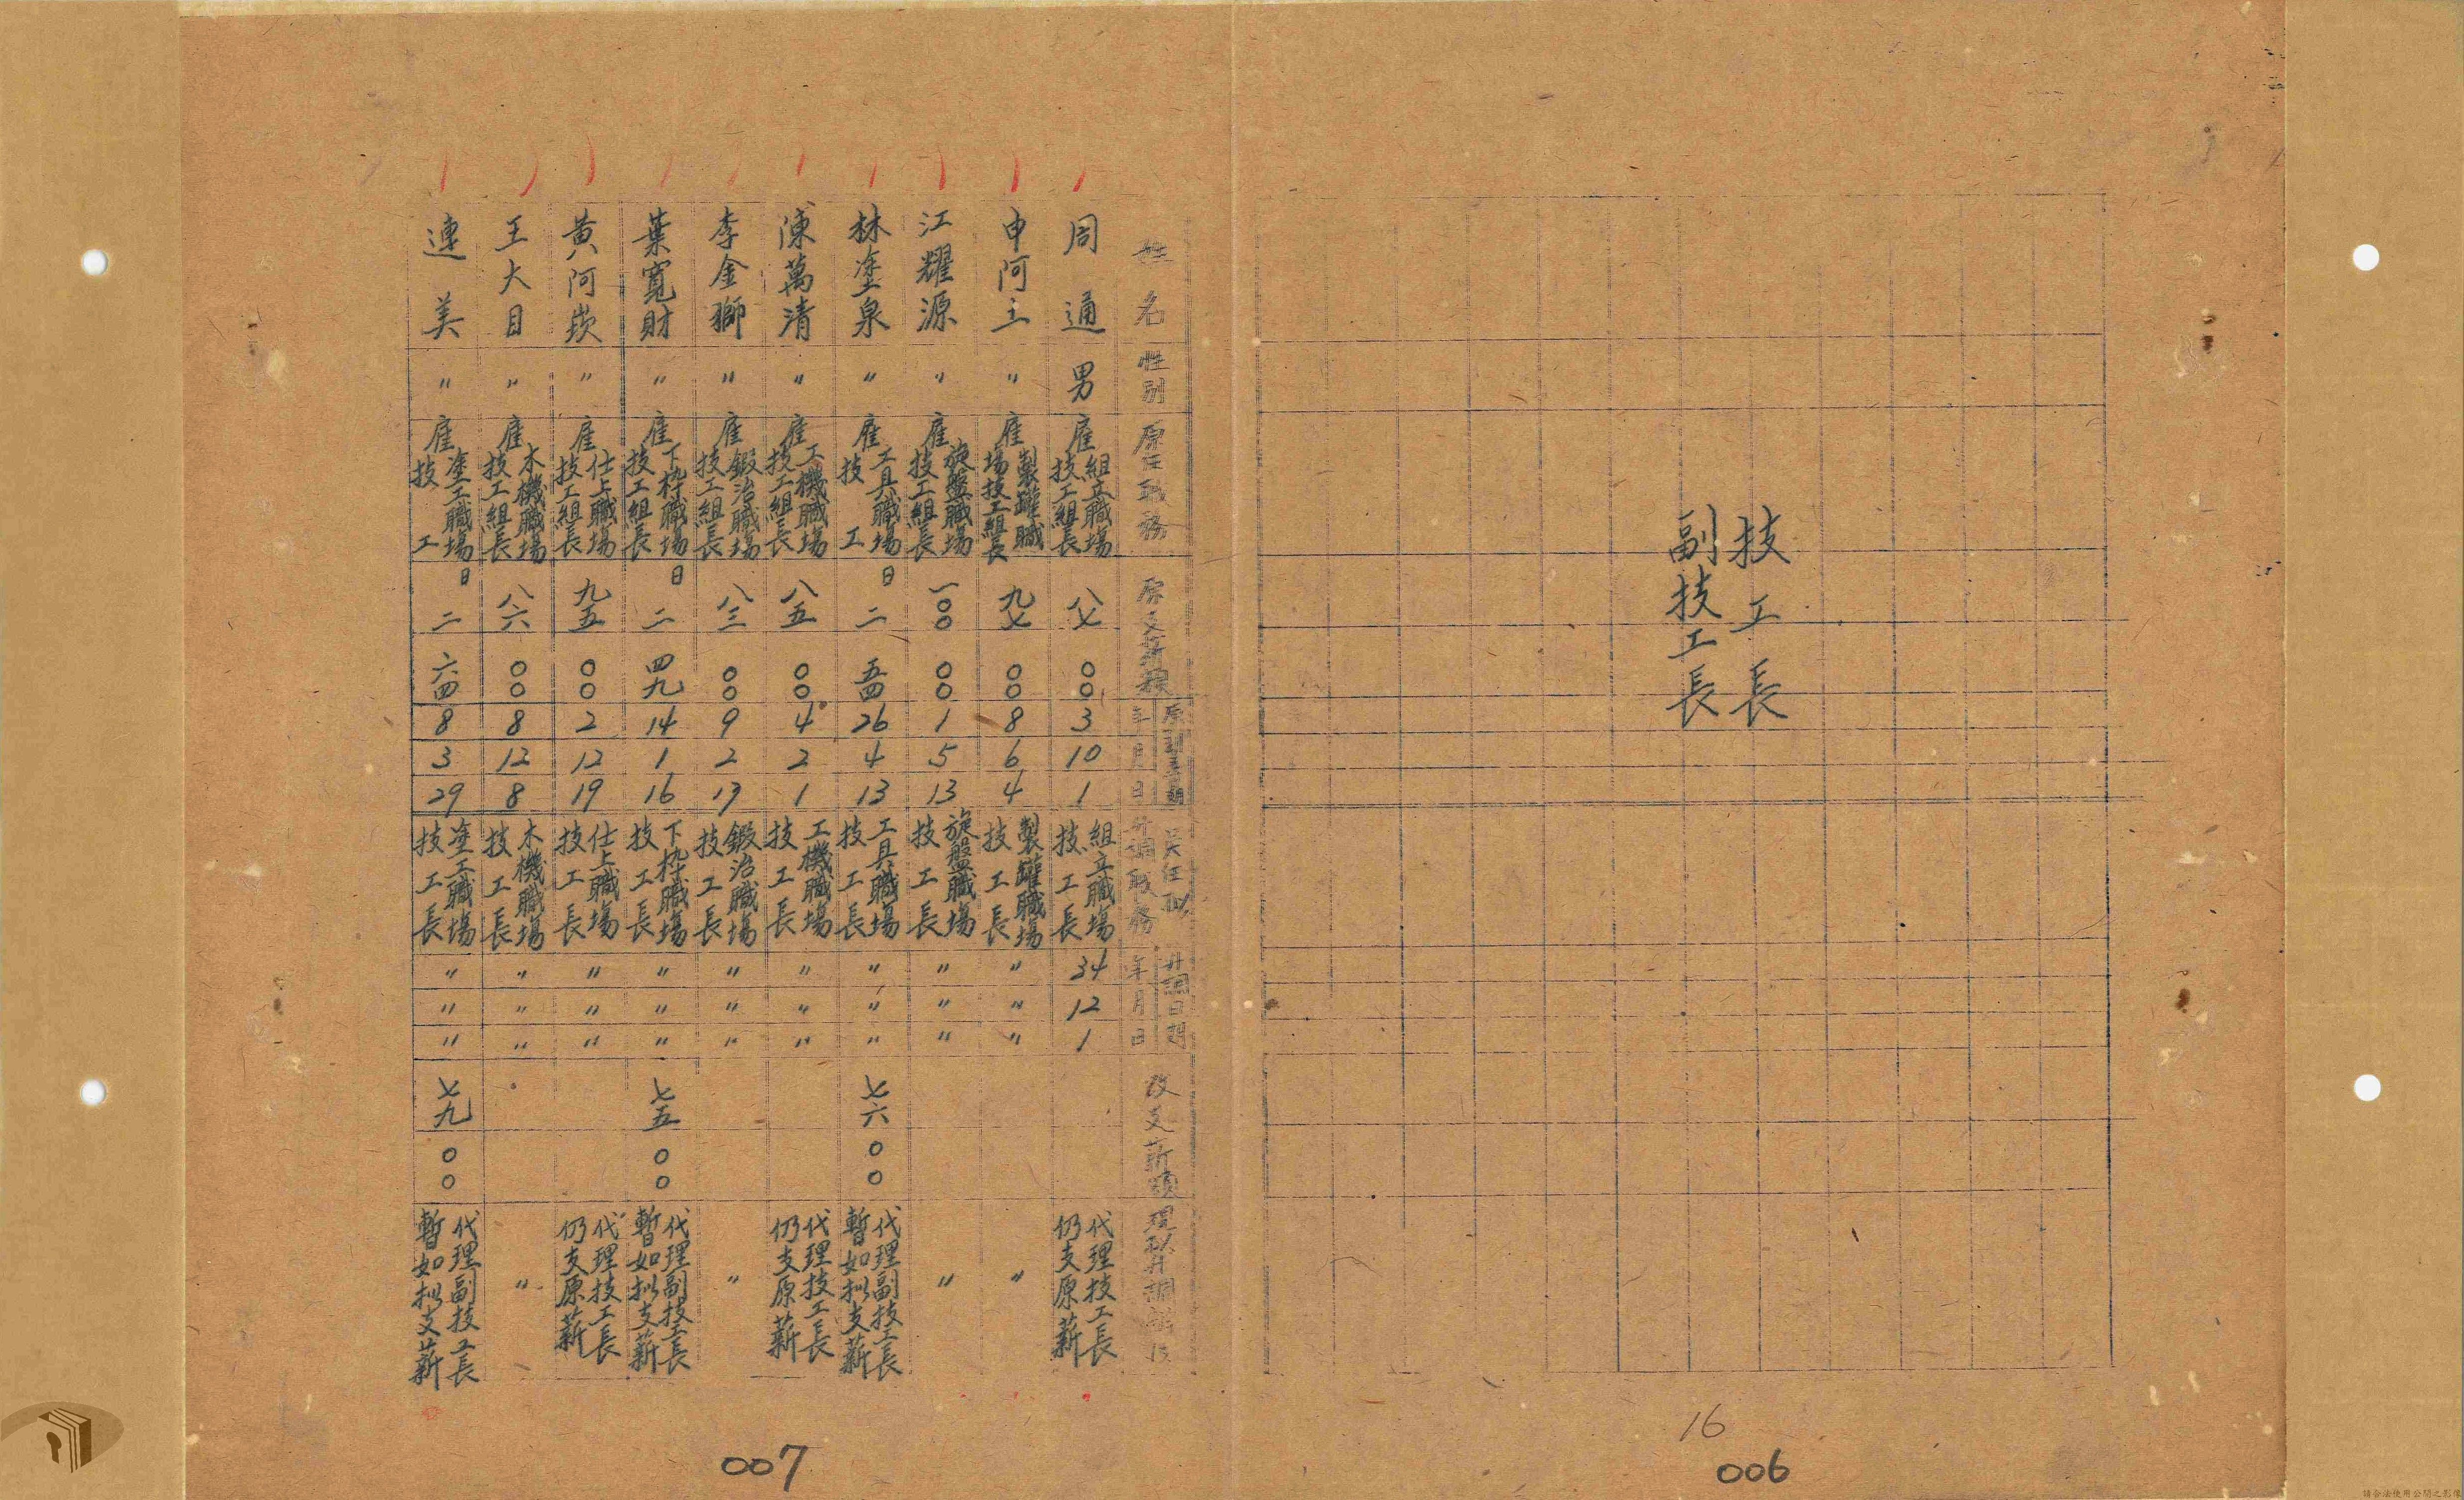 技工長
副技工長
16
006
姓名 性別 原任職務 原支薪額 原到差期 年月日 升調職務 升調日期 年月日 改支薪額
周通 男 雇 組立職場技工組長 八七 〇〇 3 10 1 組立職場技工長 34 12 1 代理技工長仍支原薪
申阿三 〃 雇 製罐職場技工組長 九七 〇〇 8 6 4 製罐職場技工長 〃 〃 〃 〃
江耀源 〃 雇 旋盤職場技工組長 一〇〇 〇〇 1 5 13 旋盤職場技工長 〃 〃 〃 〃
林塗泉 〃 雇 工具職場技工 日 二 五四 26 4 13 工具職場技工長 〃 〃 〃 七六 〇〇 代理副技工長暫如拟支薪
陳萬清 〃 雇 工機職場技工組長 八五 〇〇 4 2 1 工機職場技工長 〃 〃 〃 代理技工長仍支原薪
李金獅 〃 雇 鍛冶職場技工組長 八三 〇〇 9 2 17 鍛冶職場技工長 〃 〃 〃 〃
葉寬財 〃 雇 下枠職場技工組長 日 二 四九 14 1 16 下枠職場技工長 〃 〃 〃 七五 〇〇 代理副技工長暫如拟支薪
黃阿崁 〃 雇 仕上職場技工組長 九五 〇〇 2 12 19 仕上職場技工長 〃 〃 〃 代理技工長仍支原薪
王大目 〃 雇 木機職場技工組長 八六 〇〇 8 12 8 木機職場技工長 〃 〃 〃 〃
連美 〃 雇 塗工職場技工 日 二 六四 8 3 29 塗工職場技工長 〃 〃 〃 七九 〇〇 代理副技工長暫如拟支薪
007